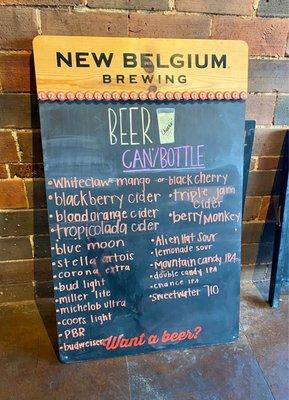 NEW BELGIUM
BREWING
BEER
CAN/BOTTLE
• Whiteclaw - mango or black cherry
• blackberry cider
• triple jam cider
• blood orange cider
• berry monkey
• tropicolada cider
• blue moon
• Alien Hat sour
• stella artois
• lemonade sour
• corona extra
• Mountain candy IPA
• bud light
• double candy IPA
• miller lite
• chance IPA
• michelob ultra
• Sweetwater 710
• coors light
• PBR
• budweiser
Want a beer?